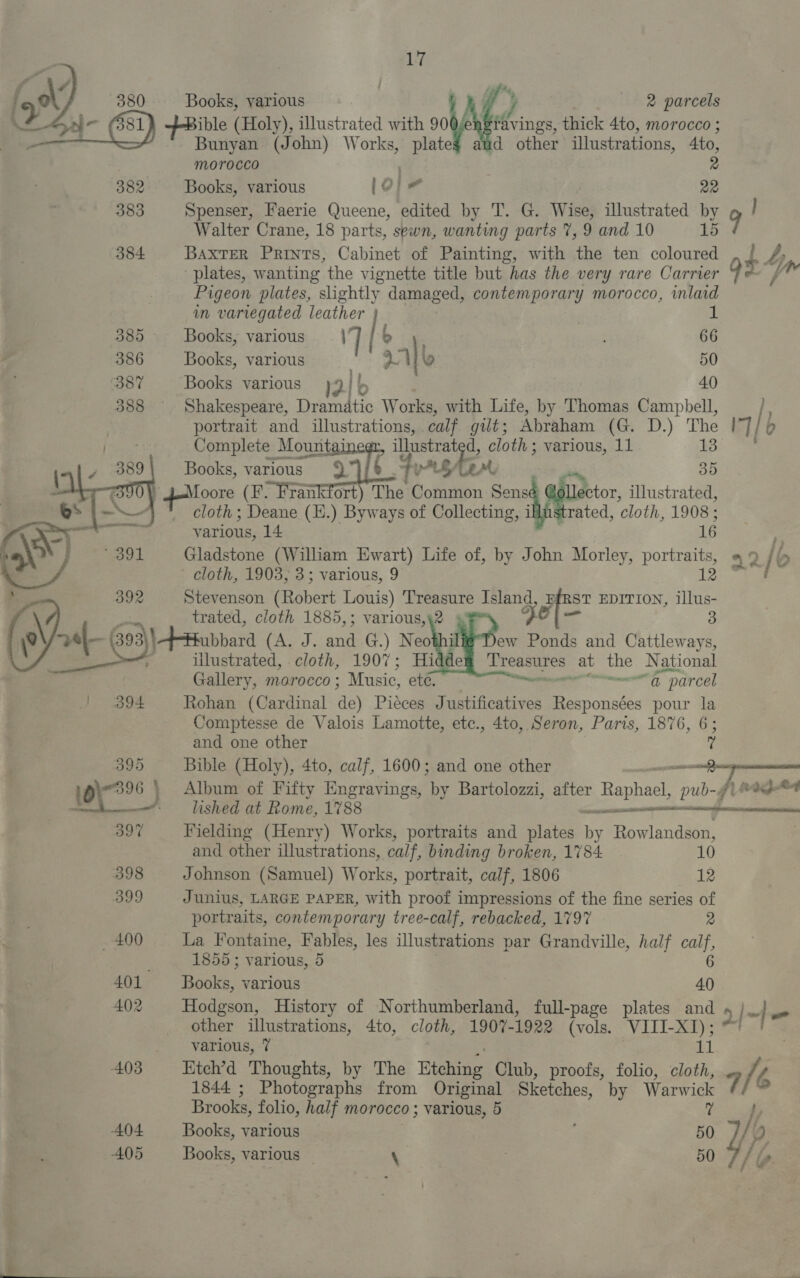 17
380 Books, various 2 parcels
381 Bible (Holy), illustrated with 900 engravings, thick 4to, morocco;
Bunyan (John) Works, plates and other illustrations, 4to,
morocco 2
382 Books, various 10/- 22
383 Spenser, Faerie Queene, edited by T. G. Wise, illustrated by
Walter Crane, 18 parts, sewn, wanting parts 7, 9 and 10 15
384 BAXTER PRINTS, Cabinet of Painting, with the ten coloured
plates, wanting the vignette title but has the very rare Carrier
Pigeon plates, slightly damaged, contemporary morocco, inlaid
in variegated leather 1
385 Books, various 17/6 66
386 Books, various 27/6 50
387 Books various 12/6 40
388 Shakespeare, Dramatic Works, with Life, by Thomas Campbell,
portrait and illustrations, calf gilt; Abraham (G. D.) The 17/6
Complete Mountaineer, illustrated, cloth; various, 11 13
389 Books, various 27/6 35
390 Moore (F. Frankfort) The Common Sense Collector, illustrated,
cloth; Deane (E.) Byways of Collecting, illustrated, cloth, 1908;
various, 14 16
391 Gladstone (William Ewart) Life of, by John Morley, portraits, 22/6
cloth, 1903, 3; various, 9 12
392 Stevenson (Robert Louis) Treasure Island, FIRST EDITION, illus-
trated, cloth 1885,; various, 2 3
393 Hubbard (A. J. and G.) Neothilic Dew Ponds and Cattleways,
illustrated, cloth, 1907; Hidden Treasures at the National
Gallery, morocco; Music, etc. a parcel
394 Rohan (Cardinal de) Pièces Justificatives Responsées pour la
Comptesse de Valois Lamotte, etc., 4to, Seron, Paris, 1876, 6;
and one other 7
395 Bible (Holy), 4to, calf, 1600; and one other 2
10/- 396 Album of Fifty Engravings, by Bartolozzi, after Raphael, pub-
lished at Rome, 1788
397 Fielding (Henry) Works, portraits and plates by Rowlandson,
and other illustrations, calf, binding broken, 1784 10
398 Johnson (Samuel) Works, portrait, calf, 1806 12
399 Junius, LARGE PAPER, with proof impressions of the fine series of
portraits, contemporary tree-calf, rebacked, 1797 2
400 La Fontaine, Fables, les illustrations par Grandville, half calf,
1855; various, 5 6
401 Books, various 40
402 Hodgson, History of Northumberland, full-page plates and
other illustrations, 4to, cloth, 1907-1922 (vols. VIII-XI);
various, 7 11
403 Etch'd Thoughts, by The Etching Club, proofs, folio, cloth, 7/6
1844; Photographs from Original Sketches, by Warwick
Brooks, folio, half morocco; various, 5 7
404 Books, various 50 7/6
405 Books, various 50 7/6